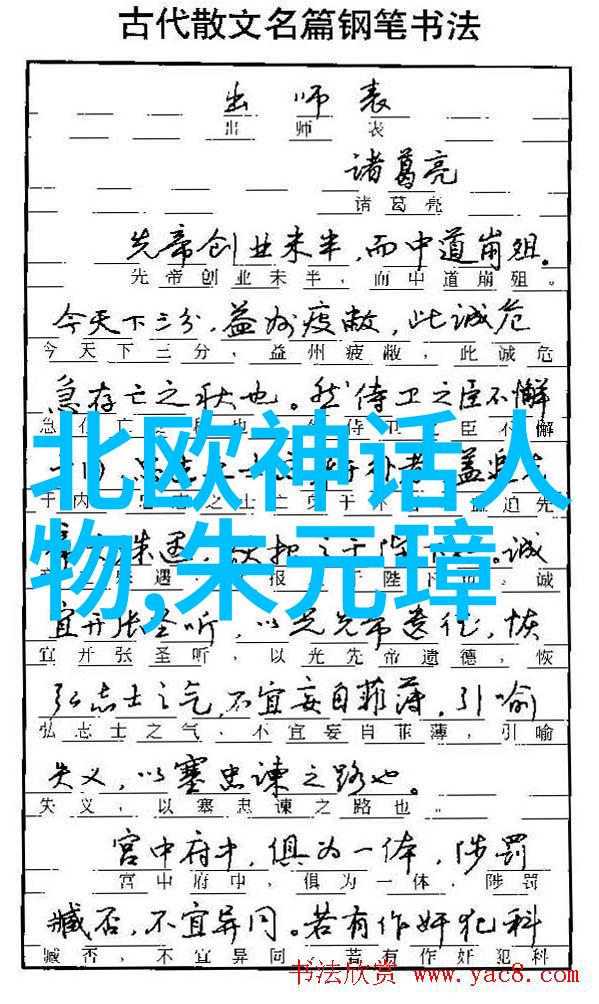 古代散文名篇钢笔书法
出师表
出师表
诸葛亮
诸葛亮
先帝创业未半，而中道崩殂。
先帝创业未半，而中道崩殂。
今天下三分，益州疲敝，此诚危
今天下三分，益州疲敝，此诚危
急存亡之秋也。然侍卫之臣不懈
北欧神话人
物,朱元璋
诚
诚
宜开张圣听，以光先帝遗德，恢
宜开张圣听，以光先帝遗德，恢
弘志士之气，不宜妄自菲薄，引喻
弘志士之气，不宜妄自菲薄，引喻
失义，以塞忠谏之路也。
失义，以塞忠谏之路也。
宫中府中，俱为一体，陟罚
宫中府中，俱为一体，陟罚
臧否，不宜异同。若有作奸犯科
臧否，不宜异同。若有作奸犯科
书法欣赏 www.yac8.com